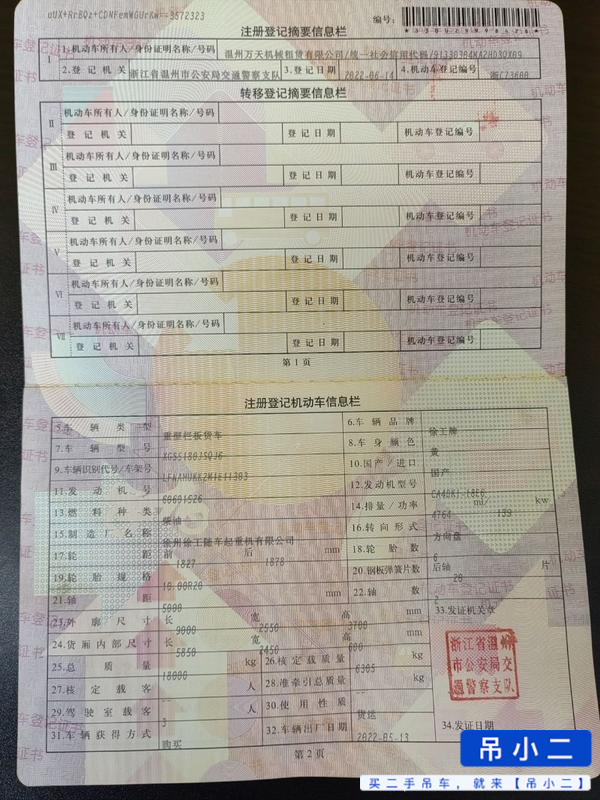 编号:
注册登记摘要信息栏
I
1.机动车所有人/身份证明名称/号码
温州万天机械租赁有限公司/统一社会信用代码/
2.登记机关
浙江省温州市公安局交通警察支队
3.登记日期
2022-06-14
4.机动车登记编号
转移登记摘要信息栏
II
机动车所有人/身份证明名称/号码
登记机关
登记日期
机动车登记编号
III
机动车所有人/身份证明名称/号码
登记机关
登记日期
机动车登记编号
IV
机动车所有人/身份证明名称/号码
登记机关
登记日期
机动车登记编号
V
机动车所有人/身份证明名称/号码
登记机关
登记日期
机动车登记编号
VI
机动车所有人/身份证明名称/号码
登记机关
登记日期
机动车登记编号
VII
机动车所有人/身份证明名称/号码
登记机关
登记日期
机动车登记编号
第1页
注册登记机动车信息栏
5.车辆类型
重型栏板货车
6.车辆品牌
徐工牌
7.车辆型号
8.车身颜色
黄
9.车辆识别代号/车架号
10.国产/进口
国产
11.发动机号
12.发动机型号
13.燃料种类
柴油
14.排量/功率
4764 ml/ kw
15.制造厂名称
徐州徐工随车起重机有限公司
16.转向形式
方向盘
17.轮距
前 1827 后 1878 mm
18.轮胎数
6
19.轮胎规格
10.00R20
20.钢板弹簧片数
后轴 片
21.轴距
5000 mm
22.轴数
2
23.外廓尺寸
长 9000 宽 2550 高 3700 mm
33.发证机关章
24.货厢内部尺寸
长 5850 宽 2450 高 600 mm
浙江省温州
市公安局交
通警察支队
25.总质量
18000 kg
26.核定载质量
6305 kg
27.核定载客
人
28.准牵引总质量
kg
29.驾驶室载客
3 人
30.使用性质
货运
31.车辆获得方式
购买
32.车辆出厂日期
2022-05-13
34.发证日期
第2页
吊小二
买二手吊车,就来【吊小二】